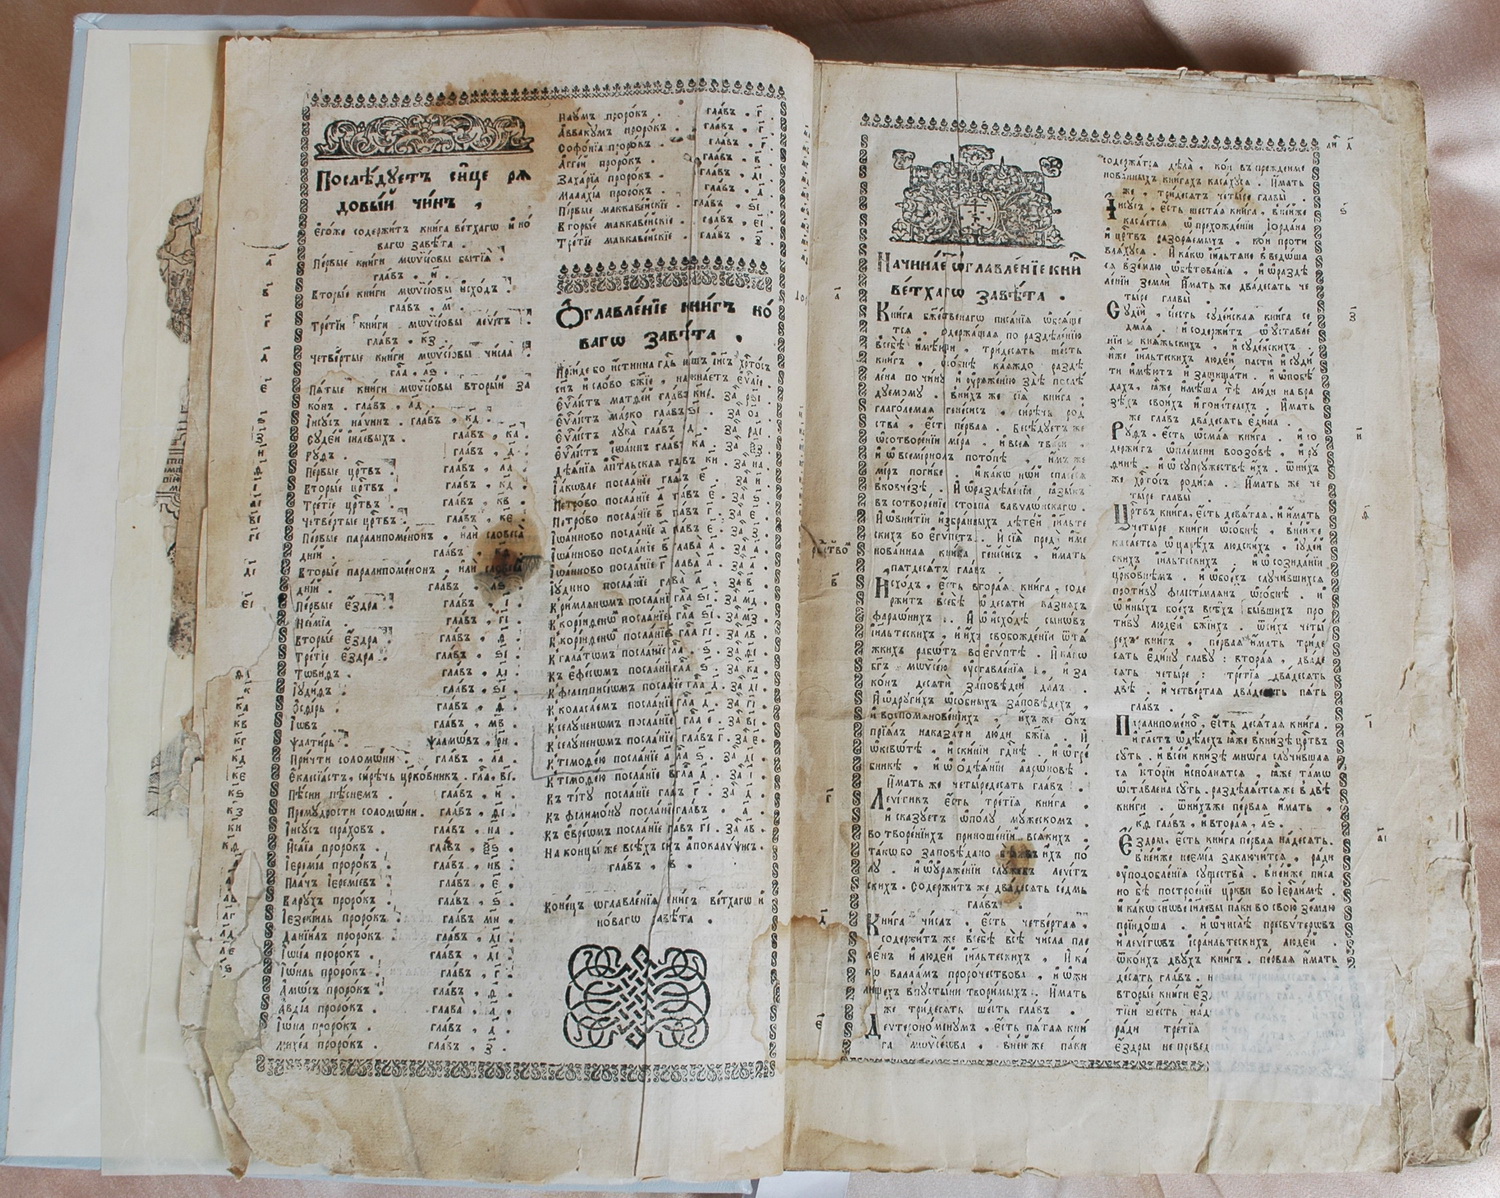 Послѣ́дуетъ си́це рѧ
довы́й чи́нъ ,
Его́же содержи́тъ книга ве́тхагѡ и҆ но́
вагѡ завѣ́та .
Пе́рвые кни́ги мѡѵсе́ѡвы бытїѧ̀ .
гла́въ . н҃ .
Вторы́е кни́ги мѡѵсе́ѡвы и҆схо́дъ .
гла́въ . м҃ .
Тре́тїи кни́ги мѡѵсе́ѡвы леѵі́тъ .
гла́въ . к҃з .
Четве́ртые кни́ги мѡѵсе́ѡвы числа̀
гла̀ . л҃ѕ .
Пѧ́тые кни́ги мѡѵсе́ѡвы вторы́й за
ко́нъ . гла́въ . л҃д .
І҆исꙋ́съ на́ѵинъ . гла́въ . к҃д .
Сꙋде́й і҆и҃левыхъ . гла́въ . к҃а .
Рꙋ́ѳь . гла́въ . д҃ .
Пе́рвые ца́рствъ . гла́въ . л҃а .
Вторы́е ца́рствъ . гла́въ . к҃д .
Тре́тїе ца́рствъ . гла́въ . к҃в .
Четве́ртые ца́рствъ . гла́въ . к҃е .
Пе́рвые паралипоме́нѡнъ , и҆лѝ словеса̀
дні́й .
Вторы́е паралипоме́нѡнъ , и҆лѝ словеса̀
дні́й . гла́въ . л҃ѕ .
Пе́рвые є҆́здра . гла́въ . і҃ .
Неемі́а . гла́въ . г҃і .
Вторы́е є҆́здра . гла́въ . ѳ҃ .
Тре́тїе є҆́здра . гла́въ . ѕ҃і .
Тѡви́ѧ . гла́въ . д҃і .
І҆ꙋди́ѳь . гла́въ . ѕ҃і .
Эсѳи́рь . гла́въ .
І҆́ѡвъ . гла́въ . м҃в .
Ѱалти́рь . ѱалмѡ́въ . р҃н .
При́тчи соломѡ́ни . гла́въ . л҃а .
Е҆клисїа́стъ , си́рѣчь цр҃ко́вникъ . гла́ . в҃і .
Пѣ́сни пѣ́снемъ . гла́въ . и҃ .
Премꙋ́дрости соломѡ́ни . гла́въ . ѳ҃і .
І҆исꙋ́съ сїра́ховъ . гла́въ . н҃а .
И҆са́їа проро́къ . гла́въ . ѯ҃ѕ .
І҆еремі́а проро́къ . гла́въ . н҃в .
Пла́чъ і҆еремі́евъ . гла́въ . е҃ .
Варꙋ́хъ проро́къ . гла́въ . ѕ҃ .
І҆езекі́иль проро́къ . гла́въ . м҃и .
Данїи́лъ проро́къ . гла́въ . д҃і .
Ѡ҆сі́а проро́къ . гла́въ . д҃і .
І҆ѡи́ль проро́къ . гла́въ . г҃ .
А҆мѡ́съ проро́къ . гла́въ . ѳ҃ .
А҆вді́а проро́къ . глава̀ . а҃ .
І҆ѡ́на проро́къ . гла́въ . д҃ .
Михе́а проро́къ . гла́въ . з҃ .
Наꙋ́мъ проро́къ . гла́въ . г҃ .
А҆ввакꙋ́мъ проро́къ . гла́въ . г҃ .
Софо́нїа проро́къ . гла́въ . г҃ .
А҆гге́й проро́къ . гла́въ . в҃ .
Заха́рїа проро́къ . гла́въ . д҃і .
Мала́хїа проро́къ . гла́въ . д҃ .
Пе́рвые маккаве́йскїе . гла́въ . ѕ҃і .
Вторы́е маккаве́йскїе . гла́въ . е҃і .
Тре́тїе маккаве́йскїе . гла́въ . з҃ .
Ѻ҆главле́нїе кни́гъ но́
вагѡ завѣ́та .
Прїи́де бо и҆́стинна гдⷭ҇ь на́шъ і҆и҃съ хрⷭ҇то́съ
сн҃ъ и҆ сло́во бж҃їе , начина́етъ є҆ѵⷢ҇лїе .
Е҆ѵⷢ҇ли́стъ матѳе́й гла́въ к҃и . за р҃ѕі .
Е҆ѵⷢ҇ли́стъ ма́рко гла́въ ѕ҃і . за о҃а .
Е҆ѵⷢ҇ли́стъ лꙋка̀ гла́въ . за р҃ді .
Е҆ѵⷢ҇ли́стъ і҆ѡа́ннъ гла́въ к҃а . за ѯ҃з .
Дѣѧ́нїѧ а҆пⷭ҇льскаѧ гла́въ к҃и . за н҃а .
І҆а́кѡвле посла́нїе гла́въ е҃ . за и҃ .
Петро́во посла́нїе а҃ гла́въ е҃ . за ѕ҃ .
Петро́во посла́нїе в҃ гла́въ г҃ . за
І҆ѡа́нново посла́нїе а҃ гла́въ е҃ . за
І҆ѡа́нново посла́нїе в҃ глава̀ а҃ . за а҃ .
І҆ѡа́нново посла́нїе г҃ глава̀ а҃ . за а҃ .
І҆ꙋ́дино посла́нїе глава̀ а҃ . за в҃ .
К ри́млѧнѡмъ посла́нїе гла̀ ѕ҃і . за м҃д .
К кори́нѳенѡмъ посла́нїе гла̀ ѕ҃і . за м҃з .
К кори́нѳенѡмъ посла́нїе гла̀ г҃і . за л҃в .
К гала́тѡмъ посла́нїе гла̀ . ѕ҃ . за
Къ є҆фе́сѡмъ посла́нїе гла̀ . ѕ҃ . за к҃а .
К філіппи́сїѡмъ посла́нїе гла̀ д҃ . за д҃і .
К колосаємъ посла́нїе гла̀ д҃ . за г҃і .
К солꙋ́ненѡмъ посла́нїе гла̀ е҃ . за в҃і .
К солꙋ́ненѡмъ посла́нїе гла́въ г҃ . за е҃ .
К тїмоѳе́ю посла́нїе а҃ гла̀ ѕ҃ . за д҃і .
К тїмоѳе́ю посла́нїе в҃ гла̀ д҃ . за і҃ .
Къ ті́тꙋ посла́нїе гла́въ г҃ . за д҃ .
Къ філимо́нꙋ посла́нїе глава̀ . а҃ .
Къ є҆вре́ѡмъ посла́нїе гла́въ г҃і . за л҃в .
На концы́ же всѣ́хъ си́хъ а҆пока́лѵѱїсъ .
гла́въ . к҃в .
Коне́цъ ѡ҆главле́нїѧ кни́гъ ве́тхагѡ и҆
но́вагѡ завѣ́та .
Начина́ет ѡ҆главле́нїе кни́г
ве́тхагѡ завѣ́та .
Кни́га бж҃е́ственагѡ писа́нїѧ ѡ҆бѧ́ще
тсѧ . ѡдержа́щаѧ по раздѣле́нїю
в себѣ̀ и҆ме́ни . три́десѧть ше́сть
кни́гъ . ѡ҆со́бнѣ ка́ѧждо раздѣ
ле́на по чи́нꙋ и҆ ᲂу҆рѧже́нїю здѣ̀ послѣ́
дꙋемомꙋ . в ни́хъ же сїѧ̀ кни́га .
глаго́лемаѧ ге́несисъ . си́рѣчь ро́д
ства . є҆́сть пе́рваѧ . бесѣ́дꙋетъ же
ѡ҆ сотворе́нїи мі́ра . и҆ всеѧ̀ тва́ри .
и҆ ѡ҆ всемі́рномъ пото́пѣ . и҆́мже
мі́ръ поги́бе . и҆ ка́кѡ но́й спасе́сѧ
в ковче́зѣ . и҆ ѡ҆ раздѣле́нїи ꙗ҆зы́къ
в сотворе́нїе столпа̀ вавѵлѡ́нскагѡ .
и҆ ѡ҆ вни́тїи и҆збра́нныхъ дѣте́й і҆и҃льте
скихъ во є҆гѵ́петъ . и҆ сїѧ̀ пред̾ име
но́ваннаѧ кни́га ге́несисъ . и҆́мать
пѧтдесѧ́тъ гла́въ .
И҆схо́дъ , є҆́сть втора́ѧ кни́га , соде
ржи́тъ в себѣ̀ ѡ҆ десѧтѝ ка́знехъ
фараѡ́нихъ . и҆ ѡ҆ и҆схо́дѣ сынѡ́въ
і҆и҃льтескихъ . и҆ и҆́хъ свобожде́нїи ѿ тѧ́
жкихъ рабѡ́тъ во є҆гѵ́птѣ . и҆ ка́кѡ
бг҃ъ мѡѵсе́ю
ко́нъ десѧтѝ за́повѣдей да́лъ .
и҆ ѡ҆ дрꙋги́хъ ѡ҆со́бныхъ за́повѣдехъ .
и҆ воспомѧнове́нїихъ . и҆́хъже ѻ҆́нъ
прїѧ́лъ наказа́ти лю́ди бж҃їѧ . и҆
ѡ҆ кївѡ́тѣ . и҆ ски́нїи гдⷭ҇нѣ . и҆ ѡ҆ тре́
бникѣ . и҆ ѡ҆ ѡ҆дѣѧ́нїи а҆арѡ́новѣ .
и҆́мать же четы́редесѧть гла́въ .
Леѵі́тикъ є҆́сть тре́тїѧ кни́га .
и҆ сказꙋ́етъ ѡ҆ по́лꙋ мꙋ́жескомъ .
во творе́нїихъ приноше́нїи всѧ́кихъ .
та́кѡ бо запо́вѣдано бы́сть и҆́хъ по́
лꙋ . и҆ ѡ҆ ᲂу҆рѧже́нїи слꙋ́жебъ леѵі́т
скихъ . содержи́тъ же два́десѧть се́дмь
гла́въ .
Кни́га чи́слъ . є҆́сть четве́ртаѧ .
содержи́тъ же в себѣ̀ всѣ̀ чи́сла пле
ме́нъ и҆ люде́й і҆и҃льтескихъ . и҆ ка́
кѡ валаа́мъ проро́чествова .
в пꙋсты́ни твори́мыхъ . и҆́мать
же три́десѧть ше́сть гла́въ .
Деѵтероно́мїꙋмъ . є҆́сть пѧ́таѧ кни́
га мѡѵсе́ѡва . в не́йже па́ки
содержа́тсѧ дѣла̀ , ко́и в пре́ждеиме
но́ванныхъ кни́гахъ каса́хꙋсѧ . и҆́мать
же , три́десѧть четы́ре гла́вы .
І҆исꙋ́съ , є҆́сть шеста́ѧ кни́га . в не́йже
каса́етсѧ ѡ҆ прехожде́нїи і҆ѻрда́на
и҆ ца́рствъ разорѧ́емыхъ , ко́и проти
влѧ́хꙋсѧ . и҆ ка́кѡ і҆и҃льтѧне в ведо́ша
сѧ в зе́млю ѡ҆бѣтова́нїѧ . и҆ ѡ҆ раздѣ
ле́нїи землѝ и҆́мать же два́десѧть че
ты́ре гла́вы .
Сꙋді́й , є҆́сть сꙋде́йскаѧ кни́га се
дма́ѧ . и҆ содержи́тъ ѡ҆ ᲂу҆ставле́
нїи кнѧ́жьскихъ . и҆ сꙋде́йскихъ .
и҆́же і҆и҃льтескихъ люде́й пастѝ и҆ сꙋди́
ти и҆мѣ́ютъ и҆ защища́ти . и҆ ѡ҆ побѣ́
дахъ , ꙗ҆̀же и҆мѣ́ша тѣ́ лю́ди на вра
зѣ́хъ свои́хъ и҆ гони́телехъ . и҆́мать
же гла́въ два́десѧть є҆ди́на .
Рꙋ́ѳь , є҆́сть ѻ҆сма́ѧ кни́га . и҆ со
держи́тъ ѡ҆ пле́мени воо́зовѣ . и҆ рꙋ́
ѳинѣ и҆ ѡ҆ сꙋпрꙋ́жествѣ и҆́хъ . ѿ ни́хъ
же хрⷭ҇то́съ роди́сѧ . и҆́мать же че
ты́ре гла́вы .
Ца́рствъ кни́га , є҆́сть девѧ́таѧ . и҆ и҆́мать
четы́ре кни́ги ѡ҆со́бнѣ . в ни́хже
каса́етсѧ ѡ҆ царе́хъ людски́хъ . і҆ꙋде́й
скихъ і҆и҃льтескихъ . и҆ ѡ҆ созида́нїи
цр҃ко́внѣмъ . и҆ ѡ҆ боѣ́хъ слꙋчи́вшихсѧ
проти́вꙋ філисті́млѧнъ ѡ҆со́бнѣ . и҆
ѡ҆ и҆́ныхъ боѣ́хъ всѣ́хъ бы́вшихъ про
ти́вꙋ люде́й бж҃їихъ . ѿ си́хъ четы́
рехъ кни́гъ . пе́рваѧ и҆́мать три́де
сѧть є҆ди́нꙋ главꙋ̀ : втора́ѧ , два́де
сѧть четы́ре : тре́тїѧ два́десѧть
двѣ̀ . и҆ четве́ртаѧ два́десѧть пѧ́ть
гла́въ .
Паралипоме́но , є҆́сть десѧ́таѧ кни́га .
и҆ гла́етъ ѡ҆ дѣ́лехъ ꙗ҆̀же в кни́зѣ ца́рствъ
сꙋ́ть . и҆ в се́й кни́зѣ мнѡ́га слꙋчи́вшаѧ
сѧ кото́рїи и҆спо́лнѧютсѧ . ꙗ҆̀же та́мѡ
ѡ҆ста́влена сꙋ́ть . раздѣлѧ́етсѧ же в двѣ̀
кни́ги . ѿ ни́хъже пе́рваѧ и҆́мать .
к҃ѳ гла́въ , и҆ втора́ѧ , л҃ѕ .
Е҆́здры , є҆́сть кни́га пе́рваѧ на́десѧть .
в не́йже неемі́а заключи́тсѧ . ра́ди
ᲂу҆подобле́нїѧ сꙋщества̀ . в не́йже пи́са
но є҆́сть построе́нїе цр҃кви во і҆ер҃ли́мѣ .
и҆ ка́кѡ сы́нове і҆и҃левы па́ки во свою̀ зе́млю
прїидо́ша . и҆ ѡ҆ числѣ̀ пресвѵ́терѡвъ
и҆ леѵі́тѡвъ і҆сра́ильтескихъ люде́й .
ѿ ко́ихъ двꙋ́хъ кни́гъ . пе́рваѧ и҆́мать
де́сѧть гла́въ . и҆
вторы́ѧ кни́ги є҆́з
тїи ше́сть на́д
ра́ди тре́тїѧ
є҆́здры не превед